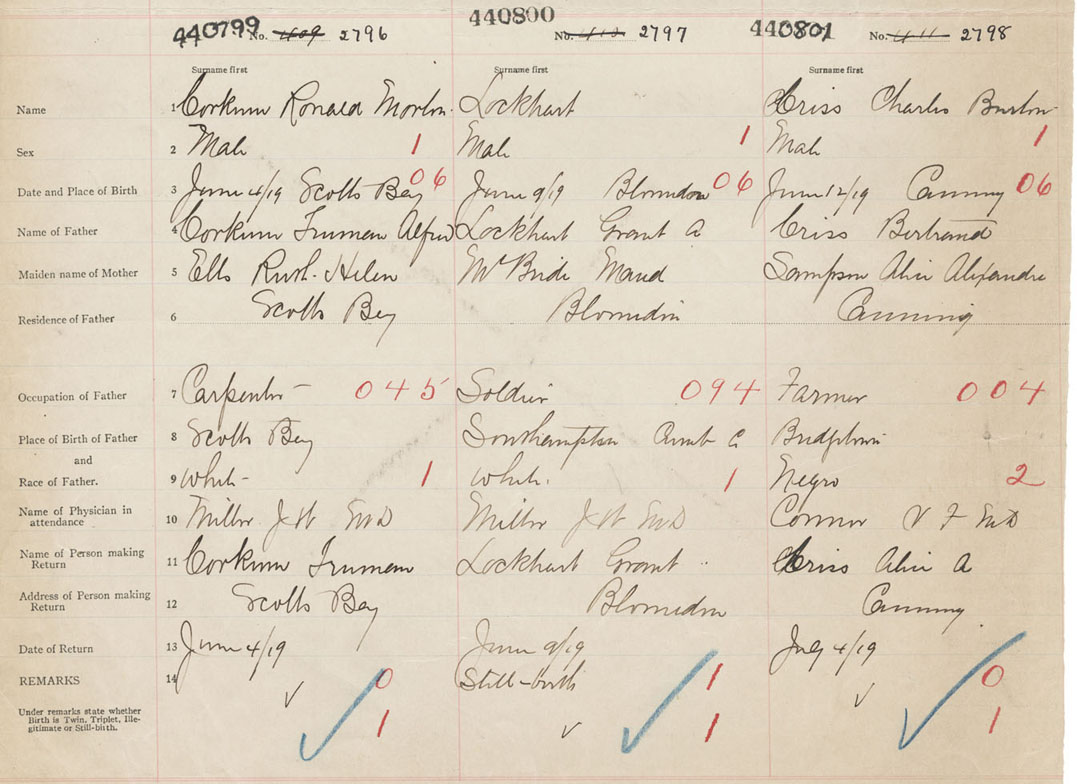 440799 No. 409 2796 440800 No. 410 2797 440801 No. 411 2798
Surname first Surname first Surname first
Name 1 Corkum Ronald Morton Lockhart Criss Charles Burton
Sex 2 Male 1 Male 1 Male 1
Date and Place of Birth 3 June 4/19 Scotts Bay 06 June 9/19 Blomidon 06 June 12/19 Canning 06
Name of Father 4 Corkum Truman Alfred Lockhart Grant A Criss Bertrand
Maiden name of Mother 5 Ells Ruth Helen McBride Maud Sampson Alice Alexandra
Residence of Father 6 Scotts Bay Blomidon Canning
Occupation of Father 7 Carpenter 045 Soldier 094 Farmer 004
Place of Birth of Father 8 Scotts Bay Southampton Cumb Co Bridgetown
and
Race of Father. 9 White 1 White 1 Negro 2
Name of Physician in
attendance 10 Miller J W M D Miller J W M D Connor V F M D
Name of Person making
Return 11 Corkum Truman Lockhart Grant Criss Alice A
Address of Person making
Return 12 Scotts Bay Blomidon Canning
Date of Return 13 June 4/19 June 9/19 July 4/19
REMARKS 14 0 Still-birth 1 0
Under remarks state whether
Birth is Twin, Triplet, Ille-
gitimate or Still-birth. 1 1 1